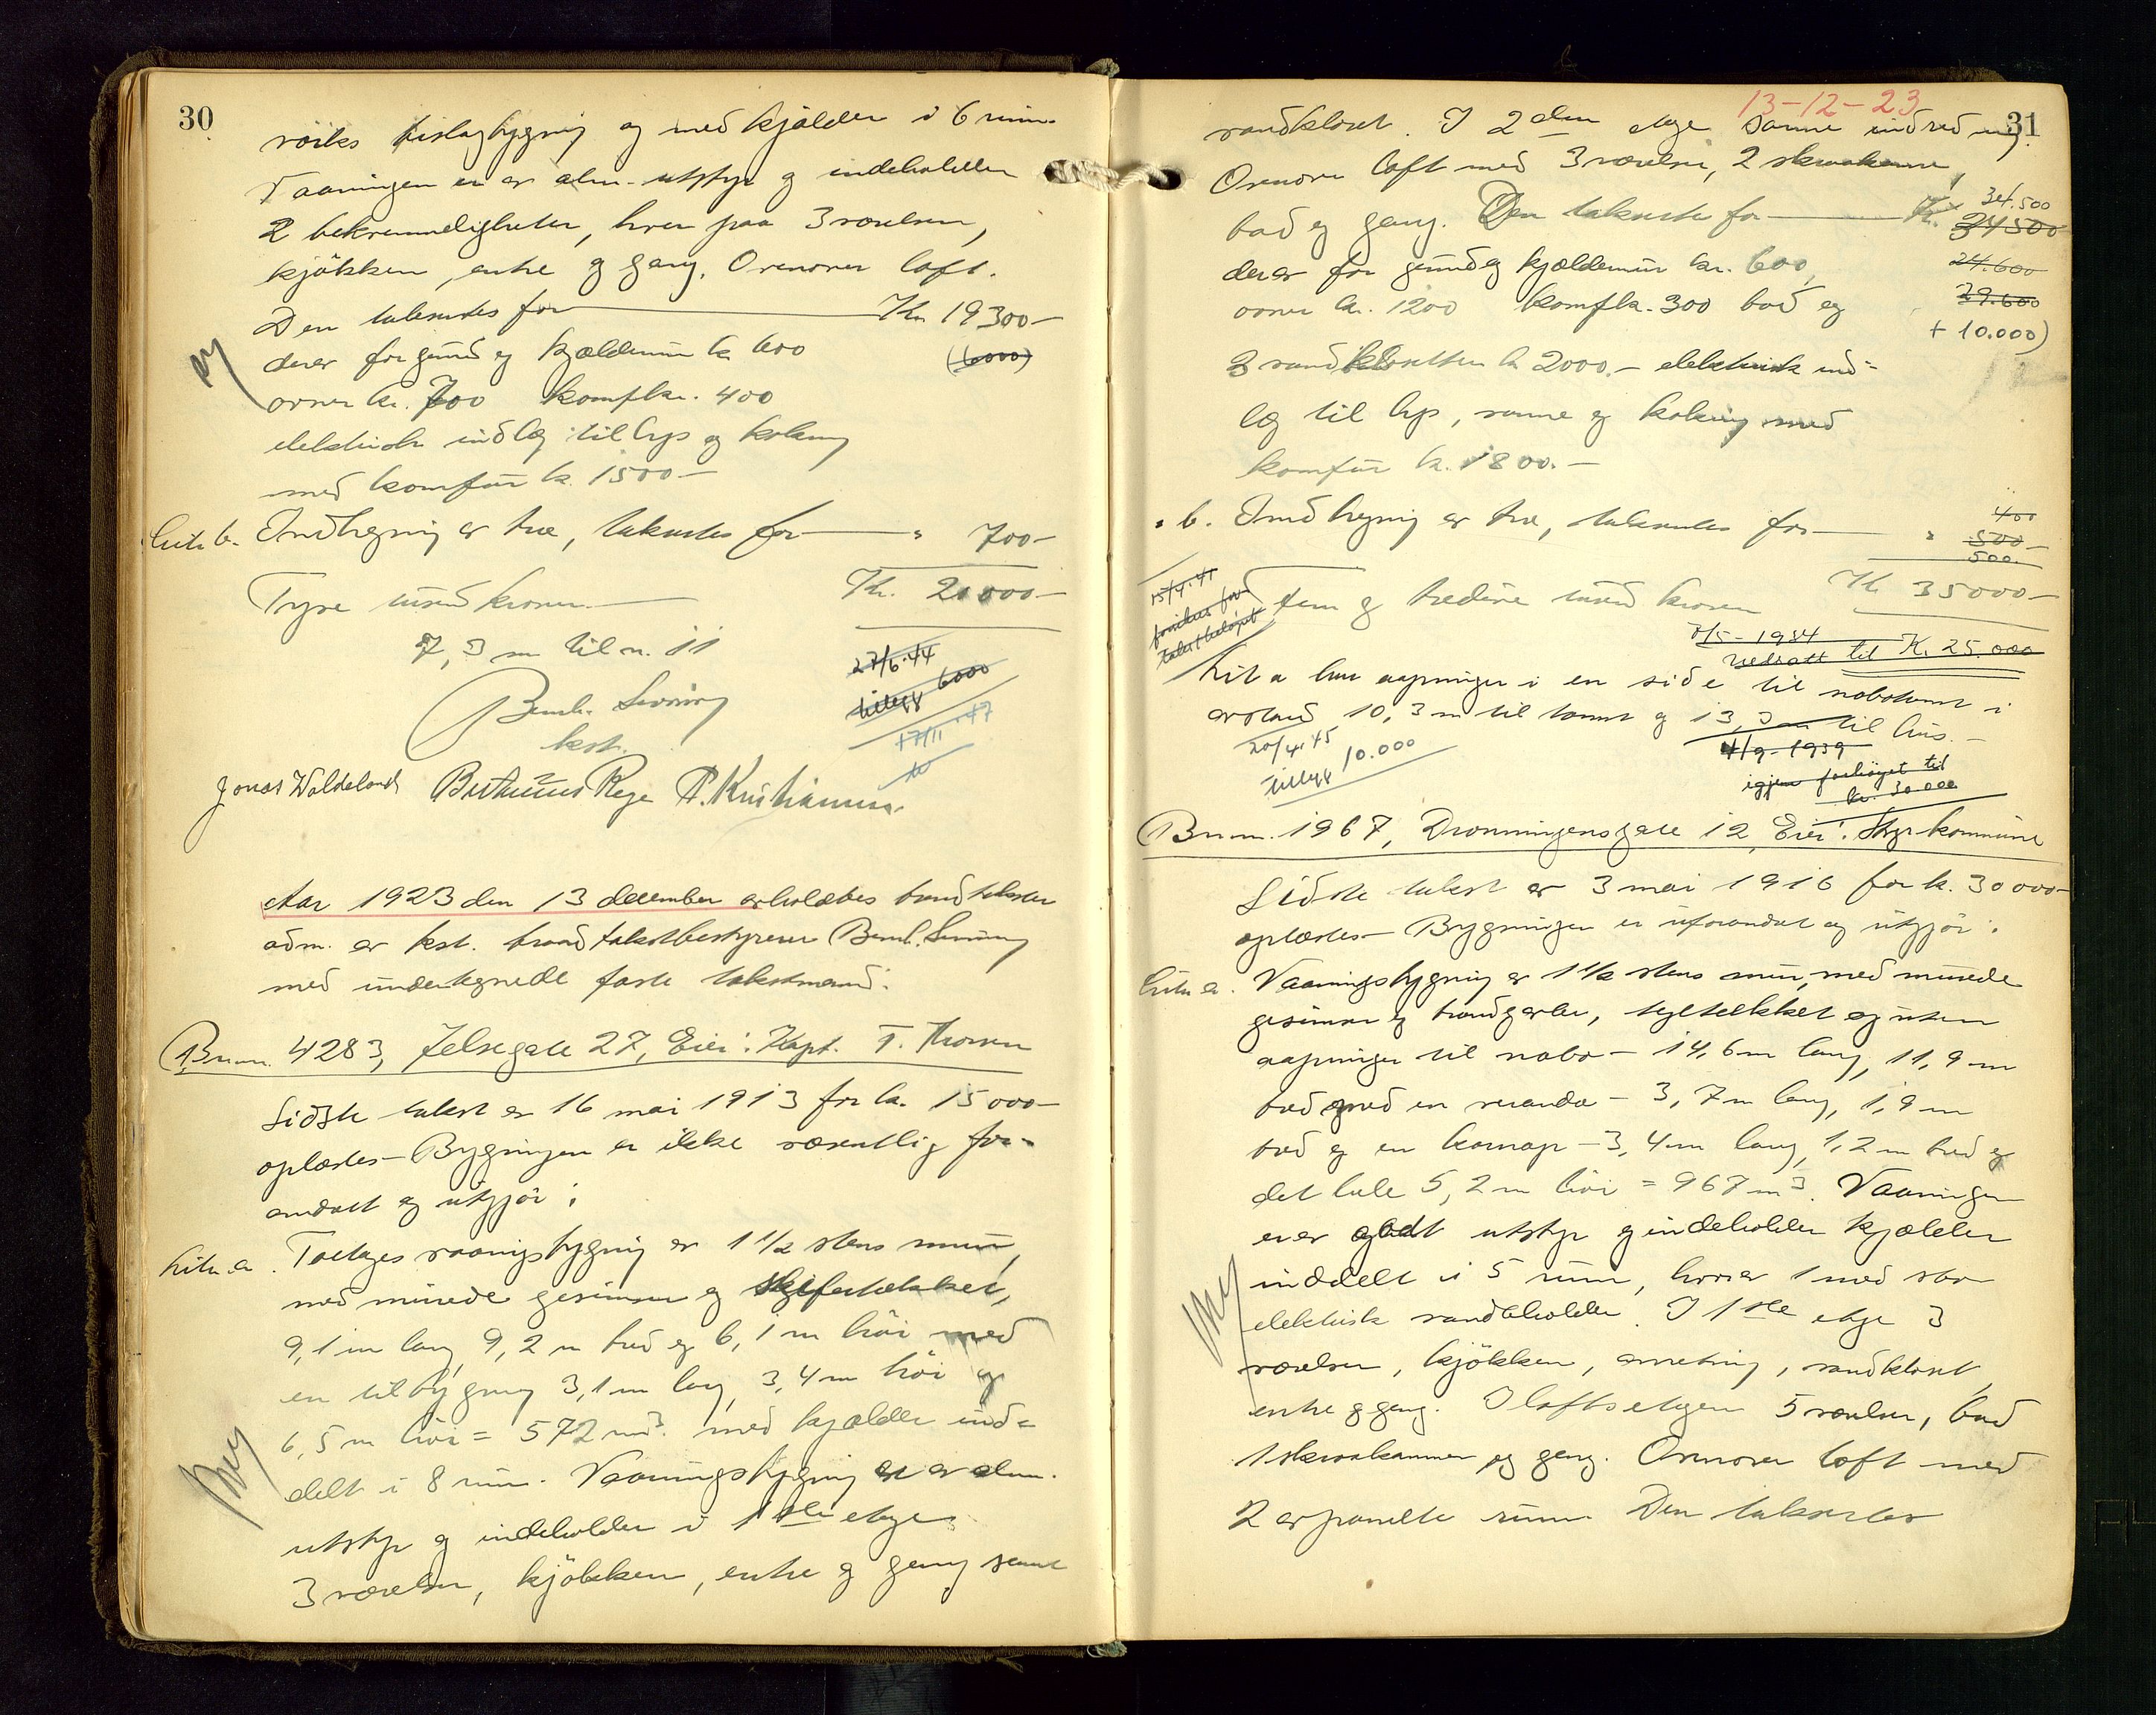 30
røiks bislagbygning og med kjælder i 6 rum.
Vaaningen er av alm. utstyr og indeholder
2 bekvemmeligheter, hver paa 3 værelser,
kjøkken, entre og gang. Ovenover loft.
Den takseres for Kr. 19300-
derav for grund og kjældermur kr. 600 (6000)
ovner kr. 700 komf kr. 400
elektrisk indlæg til lys og kokning
med komfur kr. 1500-
Litr. b. Indhegning av træ, takseres for " 700-
Tyve tusind kroner. Kr. 20000-
7,3 m til n. 11
27/6-44
tillegg 6000
17/11-47
Bernh. Severing
kst.
Jonas Waldeland Berthinius Rege P. Kristiansen
Aar 1923 den 13 december avholdtes brandtakster
adm. av kst. brandtakstbestyrerer Bernh. Severing
med undertegnede faste takstmænd:
Br.no. 4283, Jelsegate 27, Eier: Kapt. T. Thorsen
Sidste takst av 16 mai 1913 for kr. 15000-
oplæstes - Bygningen er ikke væsentlig for-
andret og utgjør:
Litr. a. Toetages vaaningsbygning av 1 1/2 stens mur,
med murede gesimser og skifertækket,
9,1 m lang, 9,2 m bred og 6,1 m høi med
en tilbygning 3,1 m lang, 3,4 m høi og
6,5 m høi = 572 m³. med kjælder ind-
delt i 8 rum. Vaaningsbygning er av alm.
utstyr og indeholder i 1ste etage
3 værelser, kjøkken, entre og gang samt
13-12-23
31
vandkloset. I 2den etage samme indredning.
Ovenover loft med 3 værelser, 2 skraakamre,
bad og gang. Den takseres for Kr. 34500
34.500
derav for grund og kjældermur kr. 600, 24.600
ovner kr. 1200 komf kr. 300 bad og 29.600
+ 10.000)
3 vandklosetter kr 2000.- elektrisk ind-
læg til lys, varme og kokning med
komfur kr. 1800.-
400
" b. Indhegning av træ, takseres for " 500-
500.
15/4.41
forsikres for
takstbeløpet
fem og tredive tusind kroner Kr 35000-
7/5-1934
nedsatt til Kr. 25.000
Lit a har aapninger i en side til nabotomt i
avstand 10,3 m til tomt og 13,3 m til hus.-
20/4.45
tillegg 10.000
4/9-1939
igjen forhøiet til
kr. 30.000
Br.no. 1967, Dronningensgate 12, Eier: Stvgr kommune
Sidste takst av 3 mai 1916 for kr. 30000-
oplæstes- Bygningen er uforandret og utgjør:
Litr. a. Vaaningsbygning av 1 1/2 stens mur, med murede
gesimser og brandgavler, tegltækket og uten
aapninger til nabo - 14,6 m lang, 11,9 m
bred med en veranda - 3,7 m lang, 1,9 m
bred og en karnap - 3,4 m lang, 1,2 m bred og
det hele 5,2 m høi = 967 m³. Vaaningen
er av godt utstyr og indeholder kjælder
inddelt i 5 rum, hvorav 1 med stor
elektrisk vandbeholder. I 1ste etage 3
værelser, kjøkken, anretning, vandkloset,
entre og gang. I loftsetagen 5 værelser, bad
1 skraakammer og gang. Ovenover loft med
2 avpanelte rum. Den takseres